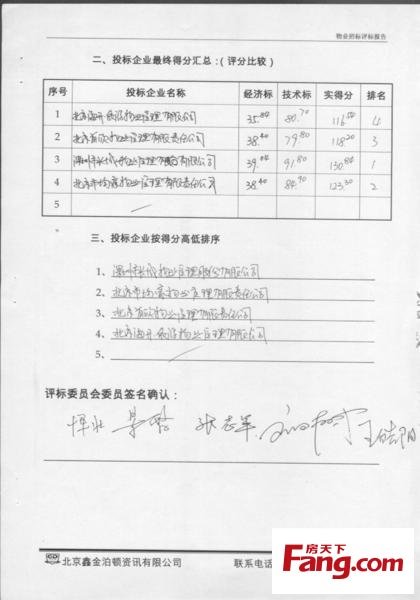 物业招标评标报告
二、投标企业最终得分汇总：（评分比较）
序号 投标企业名称 经济标 技术标 实得分 排名
1 北京海开 物业管理有限公司 35.84 80.70 116.54 4
2 北京首欣物业管理有限责任公司 38.40 79.80 118.20 3
3 深圳市长城物业管理 有限公司 39.04 91.80 130.84 1
4 北京市均豪物业管理有限责任公司 38.40 84.90 123.30 2
5
三、投标企业按得分高低排序
1、深圳市长城物业管理股份有限公司
2、北京市均豪物业管理有限责任公司
3、北京首欣物业管理有限责任公司
4、北京海开 物业管理有限公司
5、
评标委员会委员签名确认：
张志军 王皓阳
北京鑫金泊顿资讯有限公司 联系电话
房天下
Fang.com